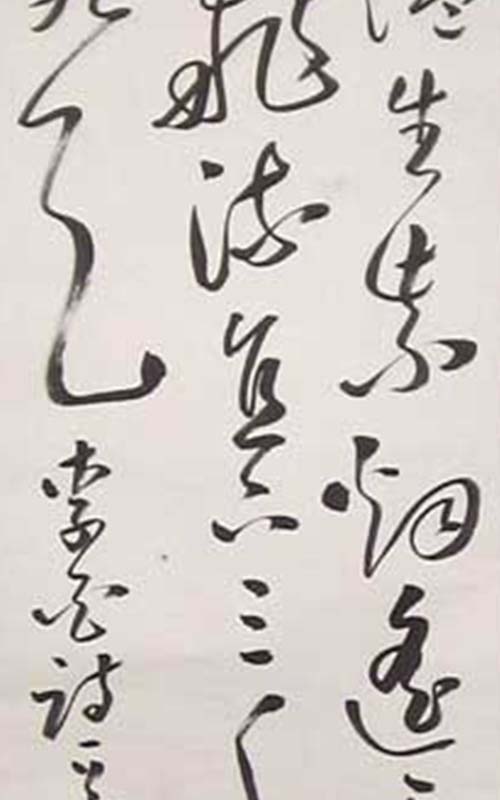 生紫烟遥
飛流直下三
天李白詩